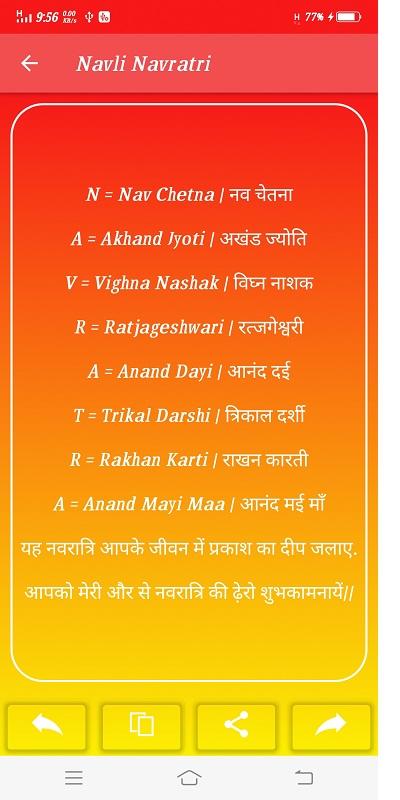 H 9:56 0.00 KB/s H 77%
Navli Navratri
N = Nav Chetna | नव चेतना
A = Akhand Jyoti | अखंड ज्योति
V = Vighna Nashak | विघ्न नाशक
R = Ratjageshwari | रत्जगेश्वरी
A = Anand Dayi | आनंद दई
T = Trikal Darshi | त्रिकाल दर्शी
R = Rakhan Karti | राखन कारती
A = Anand Mayi Maa | आनंद मई माँ
यह नवरात्रि आपके जीवन में प्रकाश का दीप जलाए.
आपको मेरी और से नवरात्रि की ढ़ेरो शुभकामनायें//